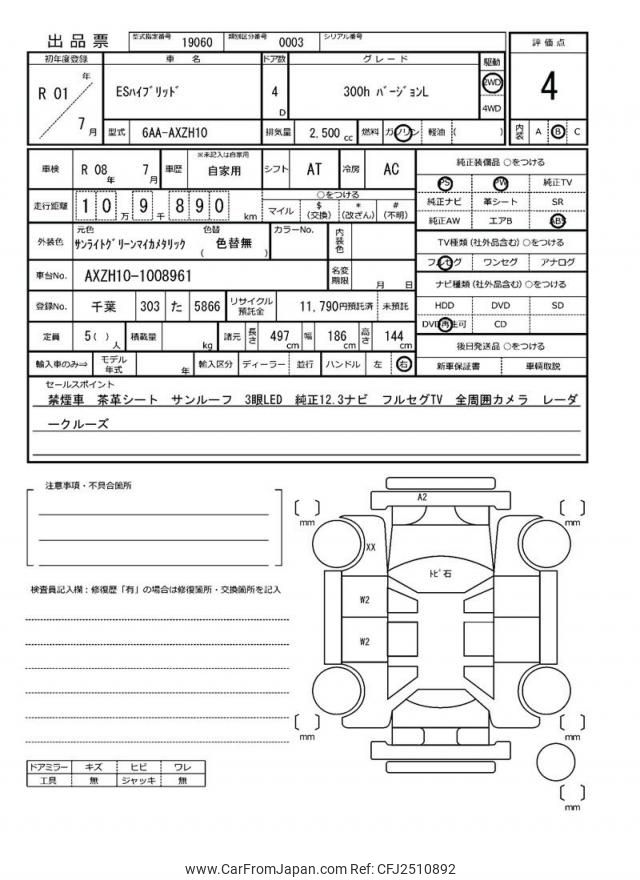 出品票
型式指定番号 19060 類別区分番号 0003 シリアル番号
評価点
4
内装 A B C
初年度登録 車名 ドア数 グレード 駆動
R 01 年 7 月
ESﾊｲﾌﾞﾘｯﾄﾞ 4 D 300h ﾊﾞｰｼﾞｮﾝL 2WD
4WD
型式 6AA-AXZH10 排気量 2,500 cc 燃料 ガソリン 軽油 ( )
車検 R 08 年 7 月 車歴 ※未記入は自家用 自家用 シフト AT 冷房 AC
走行距離 1 0 万 9 千 8 9 0 km
○をつける
マイル $ (交換) * (改ざん) # (不明)
外装色 元色 ｻﾝﾗｲﾄｸﾞﾘｰﾝﾏｲｶﾒﾀﾘｯｸ 色替 ( 色替無 ) カラーNo. 内装色
車台No. AXZH10-1008961 名変期限 月 日
登録No. 千葉 303 た 5866 リサイクル預託金 11,790円預託済 未預託
定員 5 ( ) 人 積載量 kg 諸元 長さ 497 cm 幅 186 cm 高さ 144 cm
輸入車のみ⇒ モデル年式 年 輸入区分 ディーラー 並行 ハンドル 左 右
純正装備品 ○をつける
PS PW 純正TV
純正ナビ 革シート SR
純正AW エアB ABS
TV種類(社外品含む) ○をつける
フルセグ ワンセグ アナログ
ナビ種類(社外品含む) ○をつける
HDD DVD SD
DVD再生可 CD
後日発送品 ○をつける
新車保証書 車輌取説
セールスポイント
禁煙車 茶革シート サンルーフ 3眼LED 純正12.3ナビ フルセグTV 全周囲カメラ レーダ
ークルーズ
注意事項・不具合箇所
検査員記入欄：修復歴「有」の場合は修復箇所・交換箇所を記入
ドアミラー キズ ヒビ ワレ
工具 無 ジャッキ 無
A2
mm
mm
XX
ﾄﾋﾞ石
W2
W2
mm
mm
mm
www.CarFromJapan.com Ref: CFJ2510892